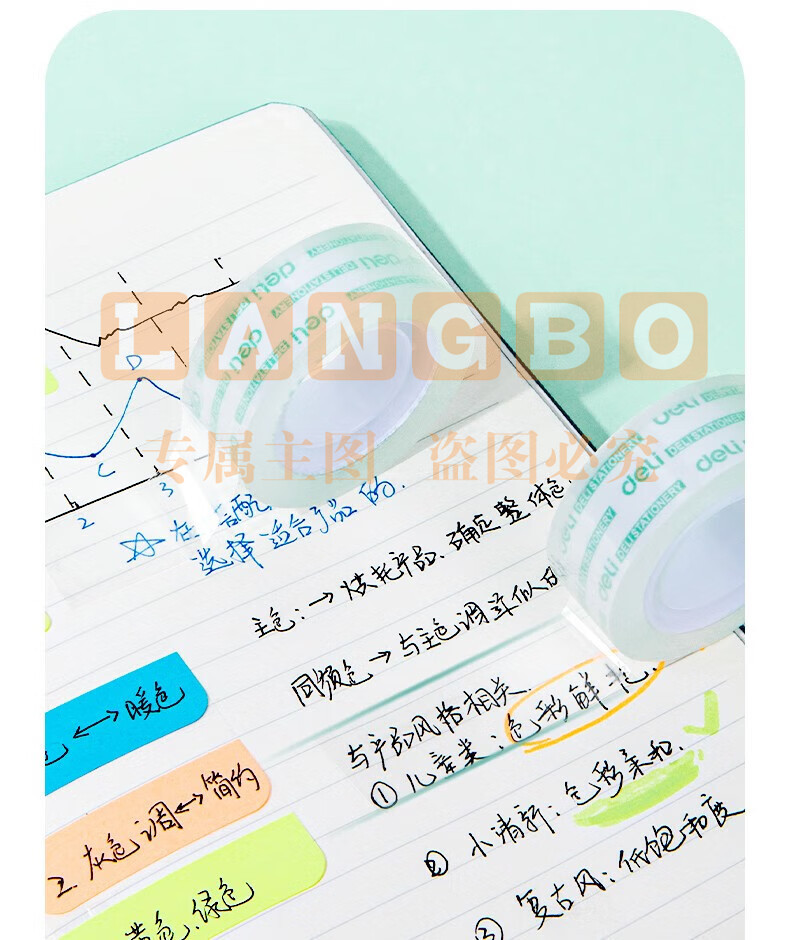 deli DELI STATIONERY
LANGBO
专属主图 盗图必究
D
C
2
3
☆在 搭配
选择适合产品的.
主色:→烘托产品.确定整体色
deli DELI STATIONERY
同频色→与主色调 类似
与产品风格相关.
①儿童类:色彩鲜艳.
②小清新:色彩柔和.
③复古风:低饱和度
色↔暖色
2.灰色调↔简约
黄色.绿色